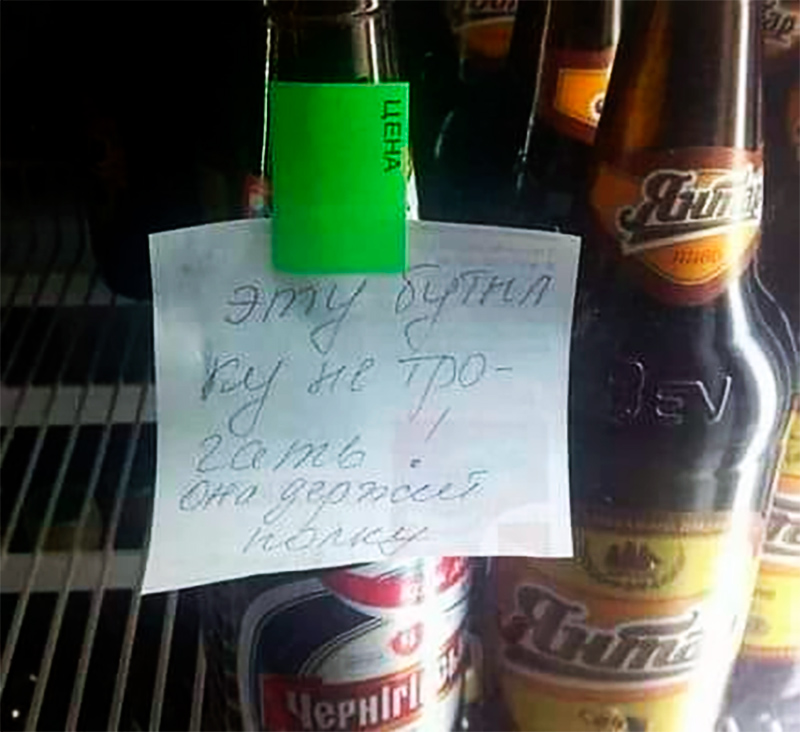 ЦЕНА
эту бутил
ку не тро-
гать!
она держит
полку
Янтар
пиво
Янта
Черніг